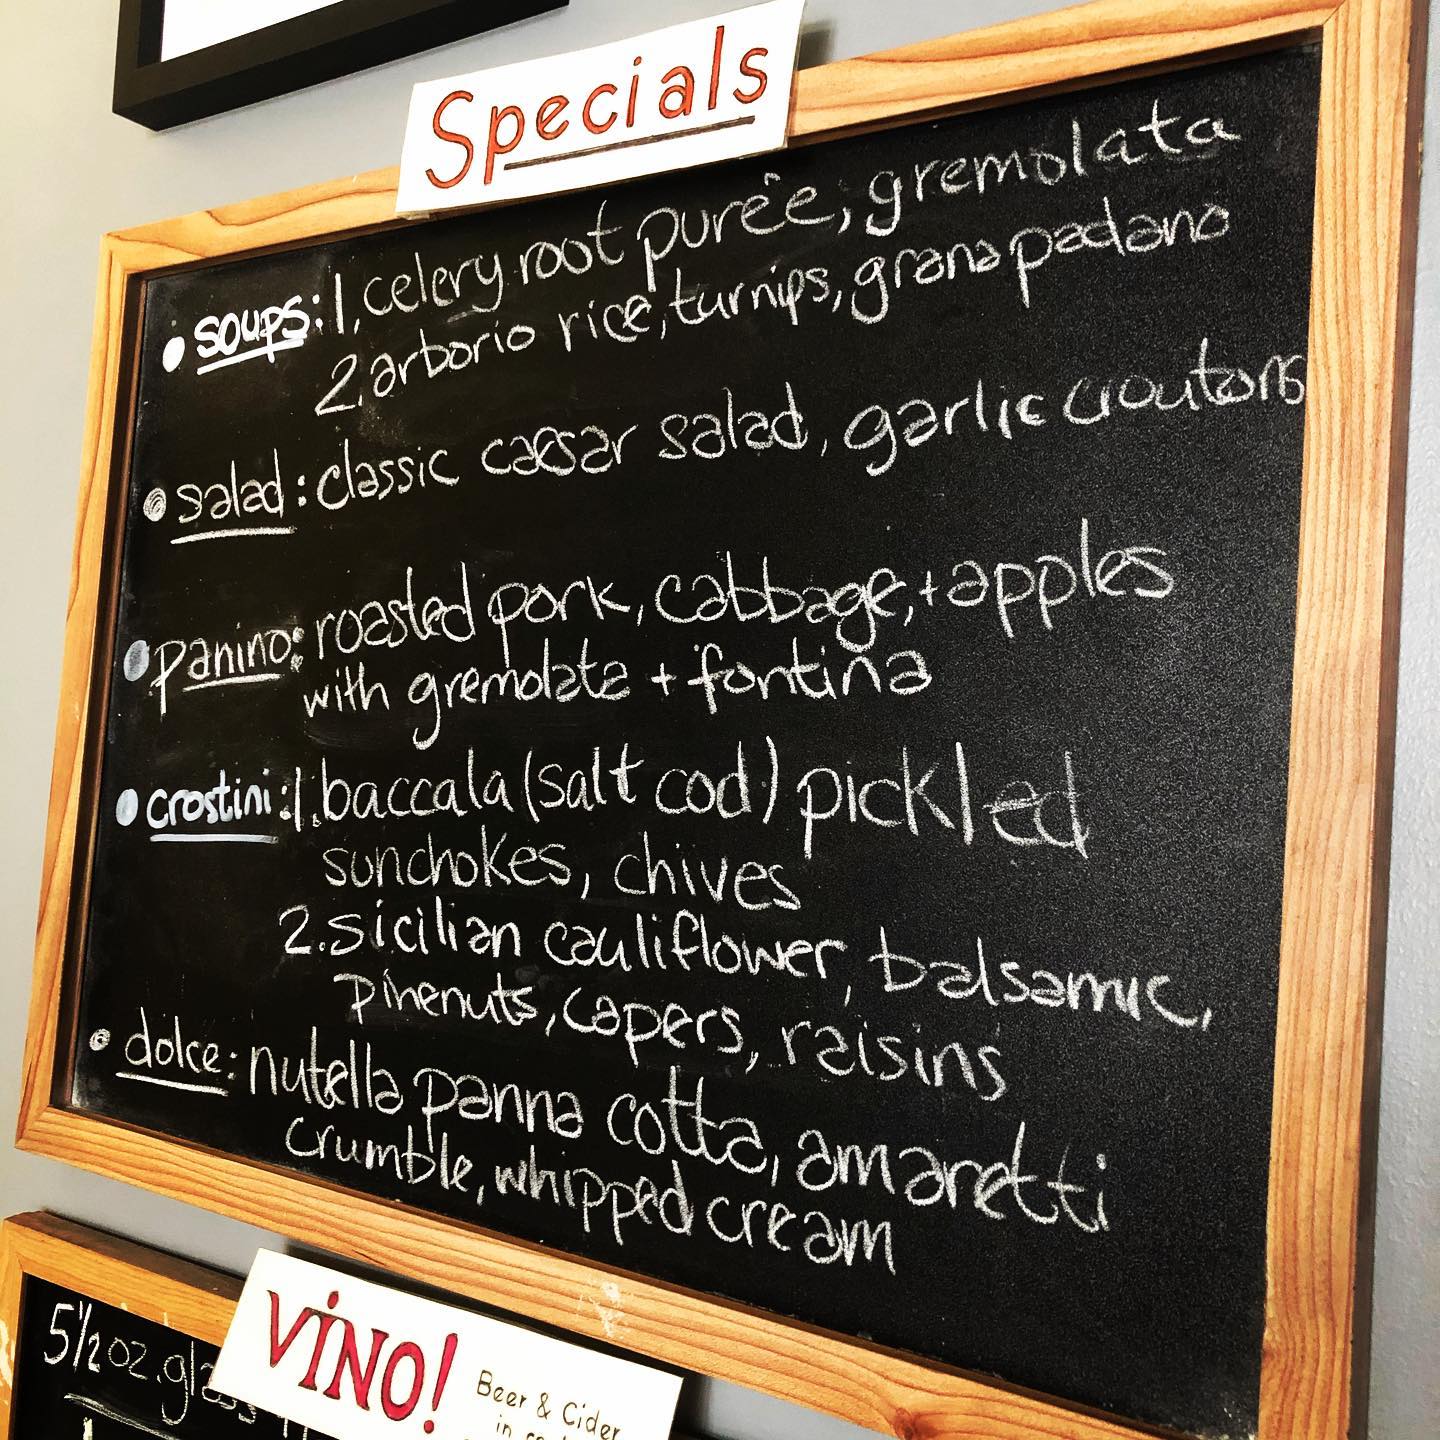 Specials
• soups: 1. celery root purêe, gremolata
2. arborio rice, turnips, grana padano
• salad: classic caesar salad, garlic croutons
• panino: roasted pork, cabbage, + apples
with gremolata + fontina
• crostini: 1. baccala (salt cod) pickled
sunchokes, chives
2. sicilian cauliflower, balsamic,
pinenuts, capers, raisins
• dolce: nutella panna cotta, amaretti
crumble, whipped cream
5 1/2 oz.
VINO!
Beer & Cider
in